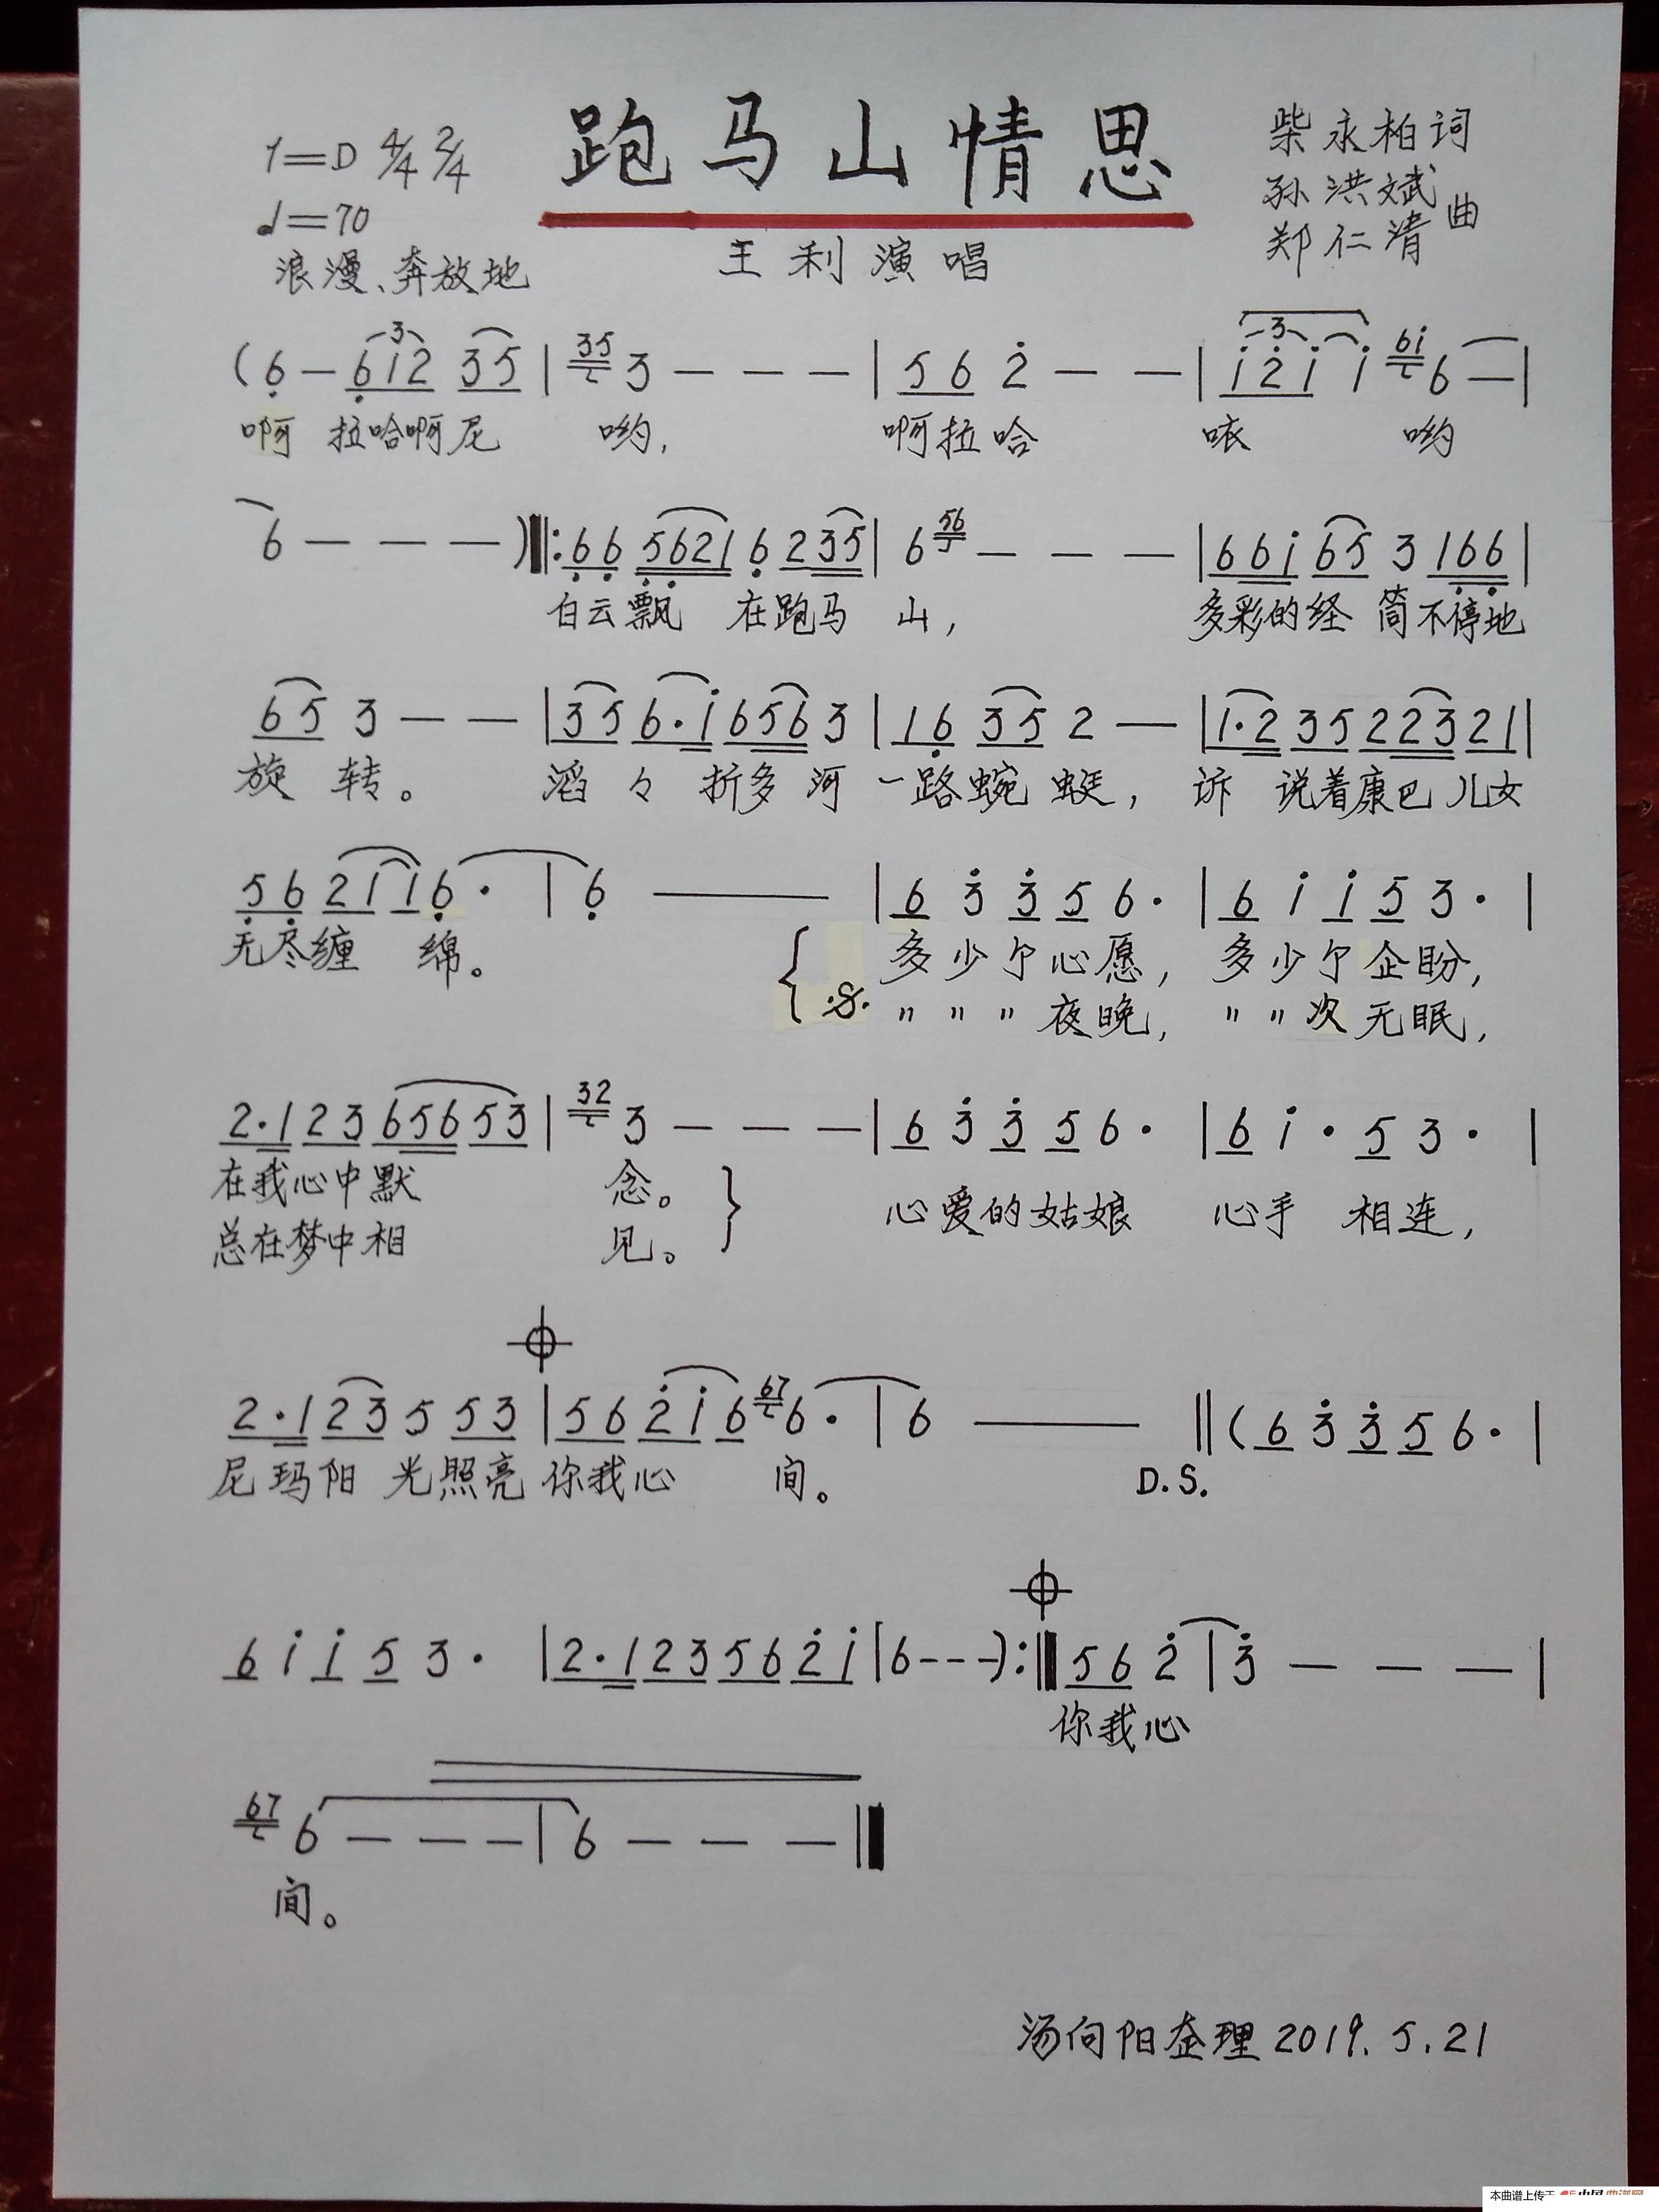 跑马山情思
1=D 4/4 2/4
♩=70
浪漫、奔放地
王利演唱
柴永柏词
孙洪斌
郑仁清 曲
(6 — 612 35 | 35 3 — — — | 56 2 — — | 121 1 61 6 — |
啊 拉哈啊尼 哟, 啊拉哈 咴 哟
6 — — — )‖: 66 5621 6 235 | 6 56 — — — | 661 65 3 166 |
白云飘 在跑马 山, 多彩的经 筒不停地
65 3 — — | 35 6·1 656 3 | 16 35 2 — | 1·2 35 223 21 |
旋 转。 滔々折多河 一路蜿蜒, 诉 说着康巴儿女
56 21 16· | 6 — | 6 3 3 5 6· | 6 1 1 5 3· |
无尽缠 绵。 { 多少个心愿, 多少个企盼,
·S· 〃 〃 〃 夜晚, 〃 〃 次无眠,
2·1 23 656 53 | 32 3 — — — | 6 3 3 5 6· | 6 1· 5 3· |
在我心中默 念。 } 心爱的姑娘 心手 相连,
总在梦中相 见。
2·1 23 5 53 | 56 21 6 67 6· | 6 — ‖ (6 3 3 5 6· |
尼玛阳 光照亮 你我心 间。 D.S.
6 1 1 5 3· | 2·1 23 56 21 | 6 - - - ):‖ 56 2 | 3 — — — |
你我心
67 6 — — — | 6 — — — ‖
间。
汤向阳奎理 2019.5.21
本曲谱上传于